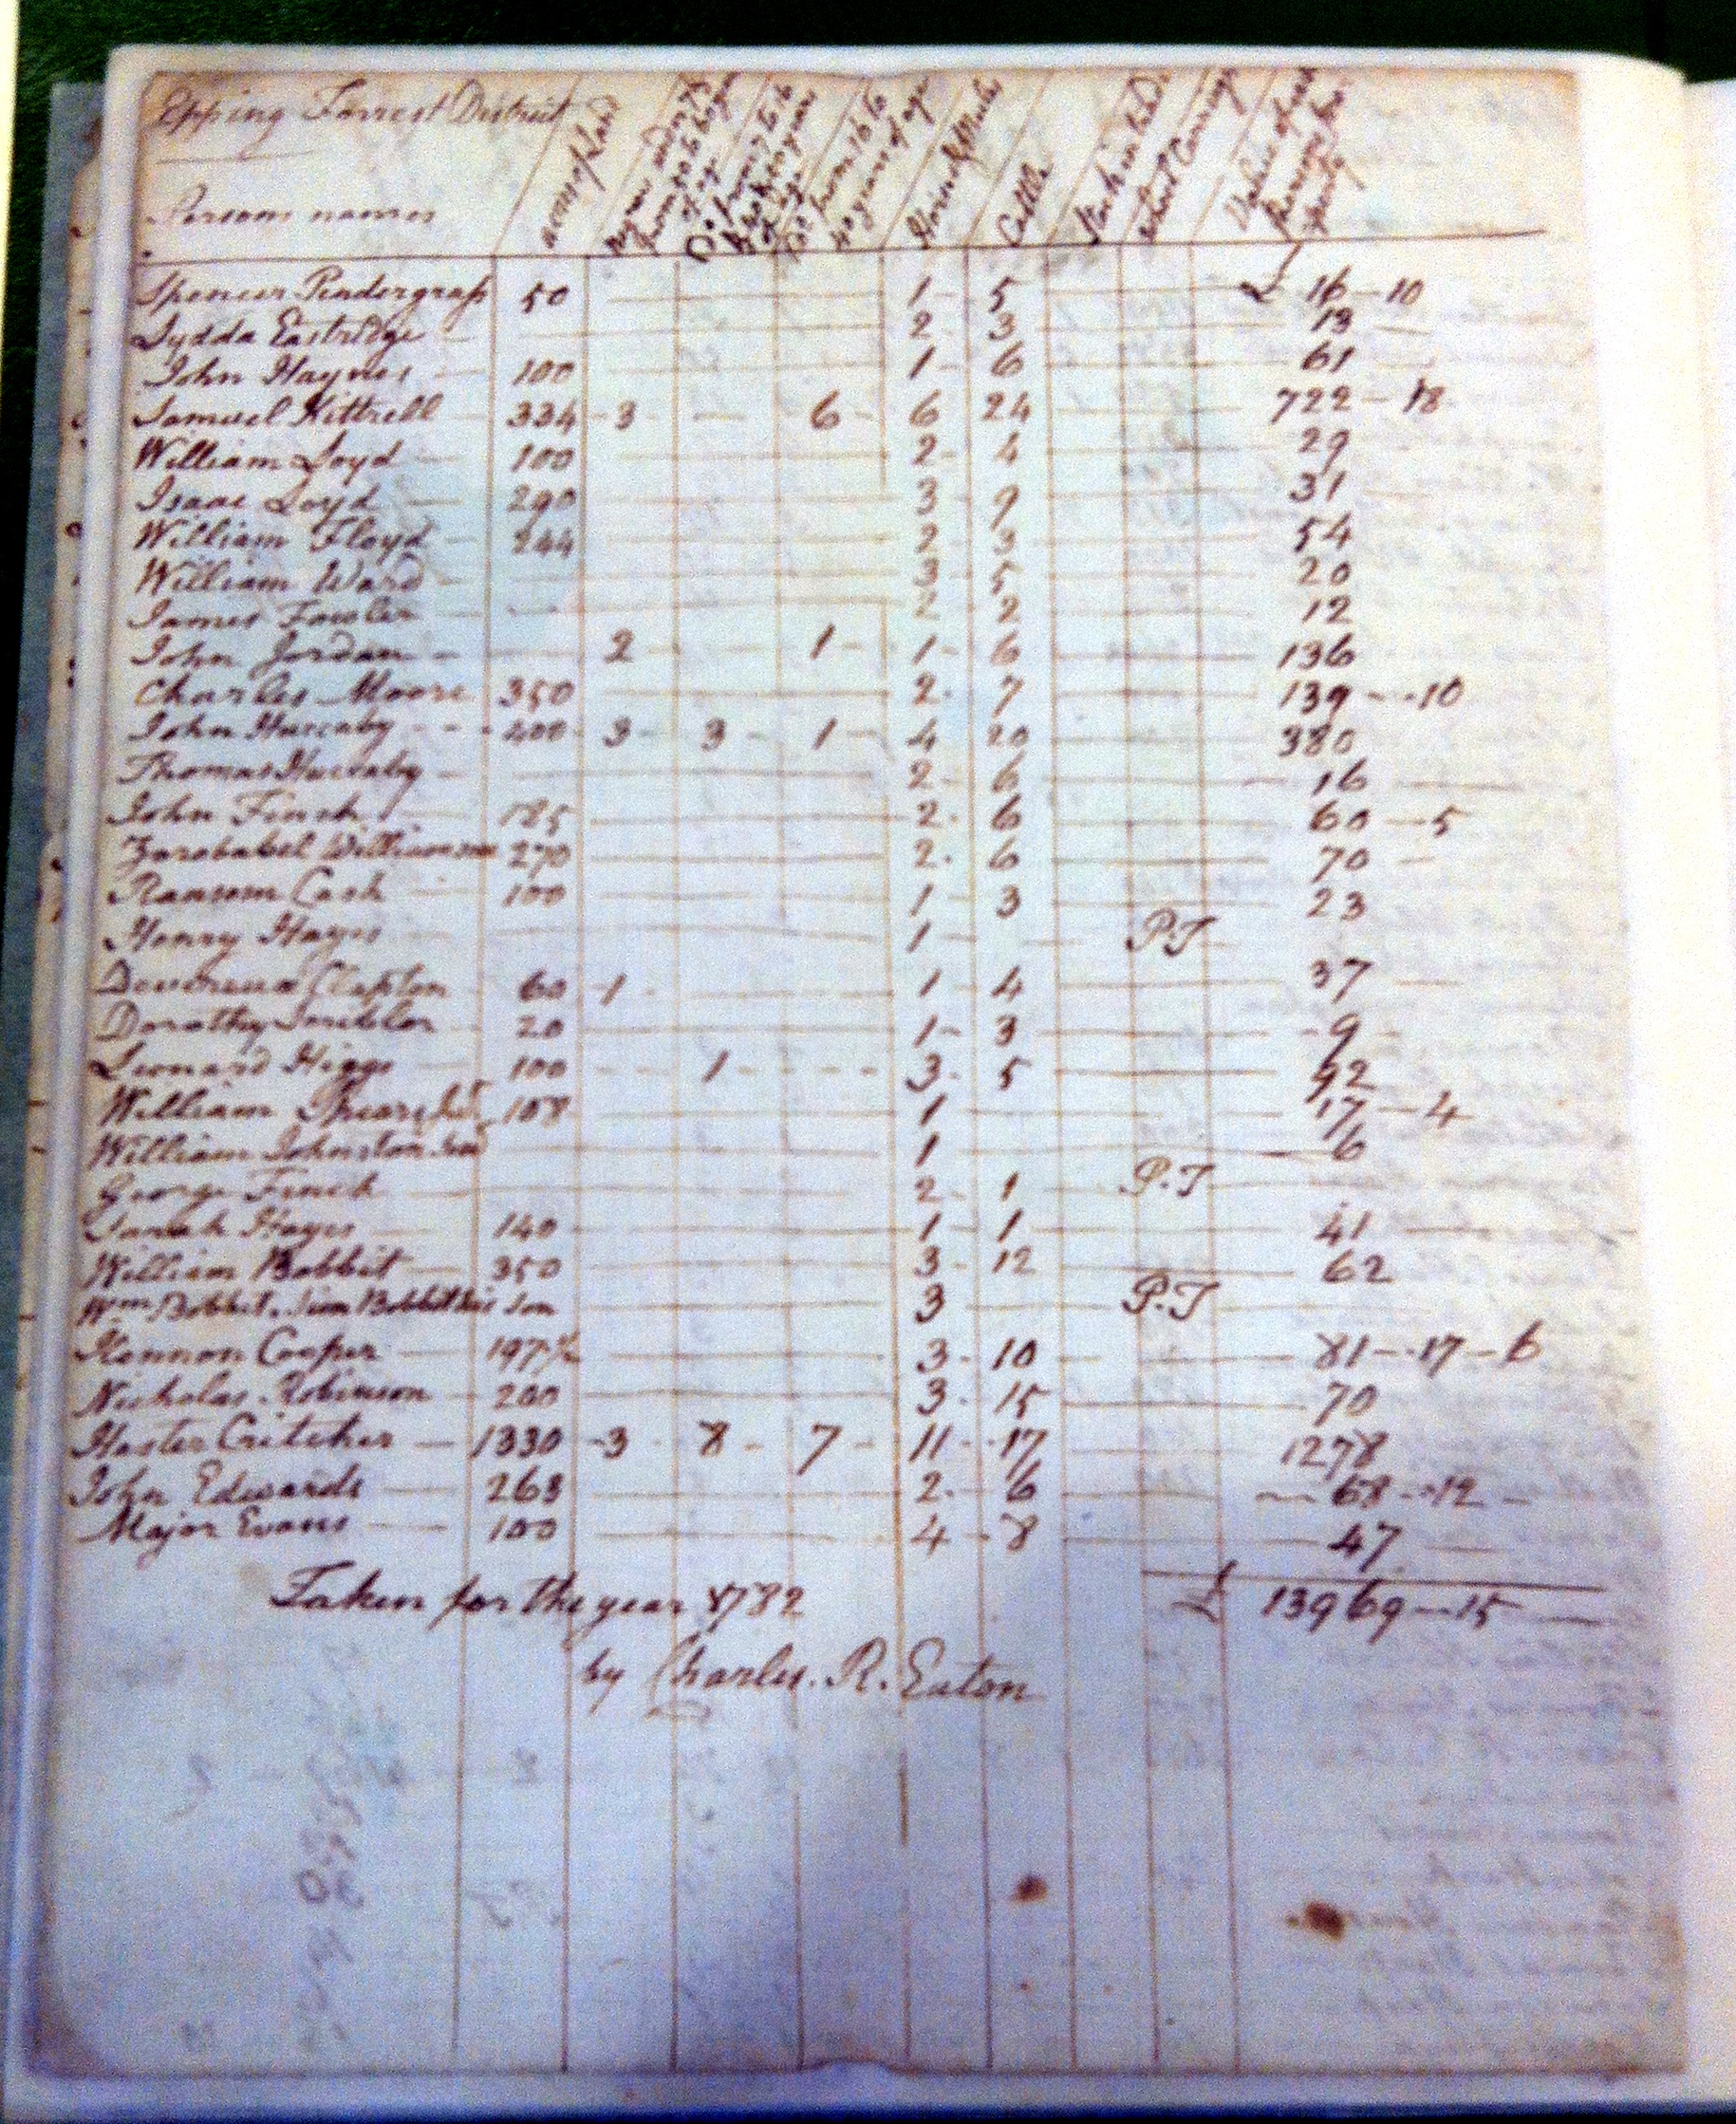 Epping Forrest District
Persons names
acres of Land
Do from 7 to 16
Do from 16 to
40 years of age
Horses & Mules
Cattle
Stock in trade
wheel Carriage
Spencer Pendergrass 50 1 5 £ 16 10
Lydda Eastridge 2 3 13
John Haynes 100 1 6 61
Samuel Kittrell 334 3 6 6 24 722 18
William Loyd 100 2 4 29
Isaac Loyd 290 3 9 31
William Floyd 244 2 3 54
William Ward 3 5 20
James Fowler 2 2 12
John Jordan 2 1 1 6 136
Charles Moore 350 2 7 139 10
John Huccaby 400 3 3 1 4 20 380
Thomas Huccaby 2 6 16
John Finch 185 2 6 60 5
Zorobabel Williamson 270 2 6 70
Ransom Cash 100 1 3 23
Henry Hayes 1 P.T
Devereux Clapton 60 1 1 4 37
Dorathy 20 1 3 9
Leonard Higgs 100 1 3 5 92
William 108 1 17 4
William Johnston 1 6
George Finch 2 1 P.T
Sarah Hayes 140 1 1 41
William Bobbit 350 3 12 62
Wm Bobbit. Sim Bobbit his Son 3 P.T
Kennon Cooper 197½ 3 10 81 17 6
Nicholas Robinson 200 3 15 70
Haster Critcher 1330 3 8 7 11 17 1278
John Edwards 268 2 6 68 12
Major Evans 100 4 8 47
£ 13969 15
Taken for the year 1782
by Charles. R. Eaton